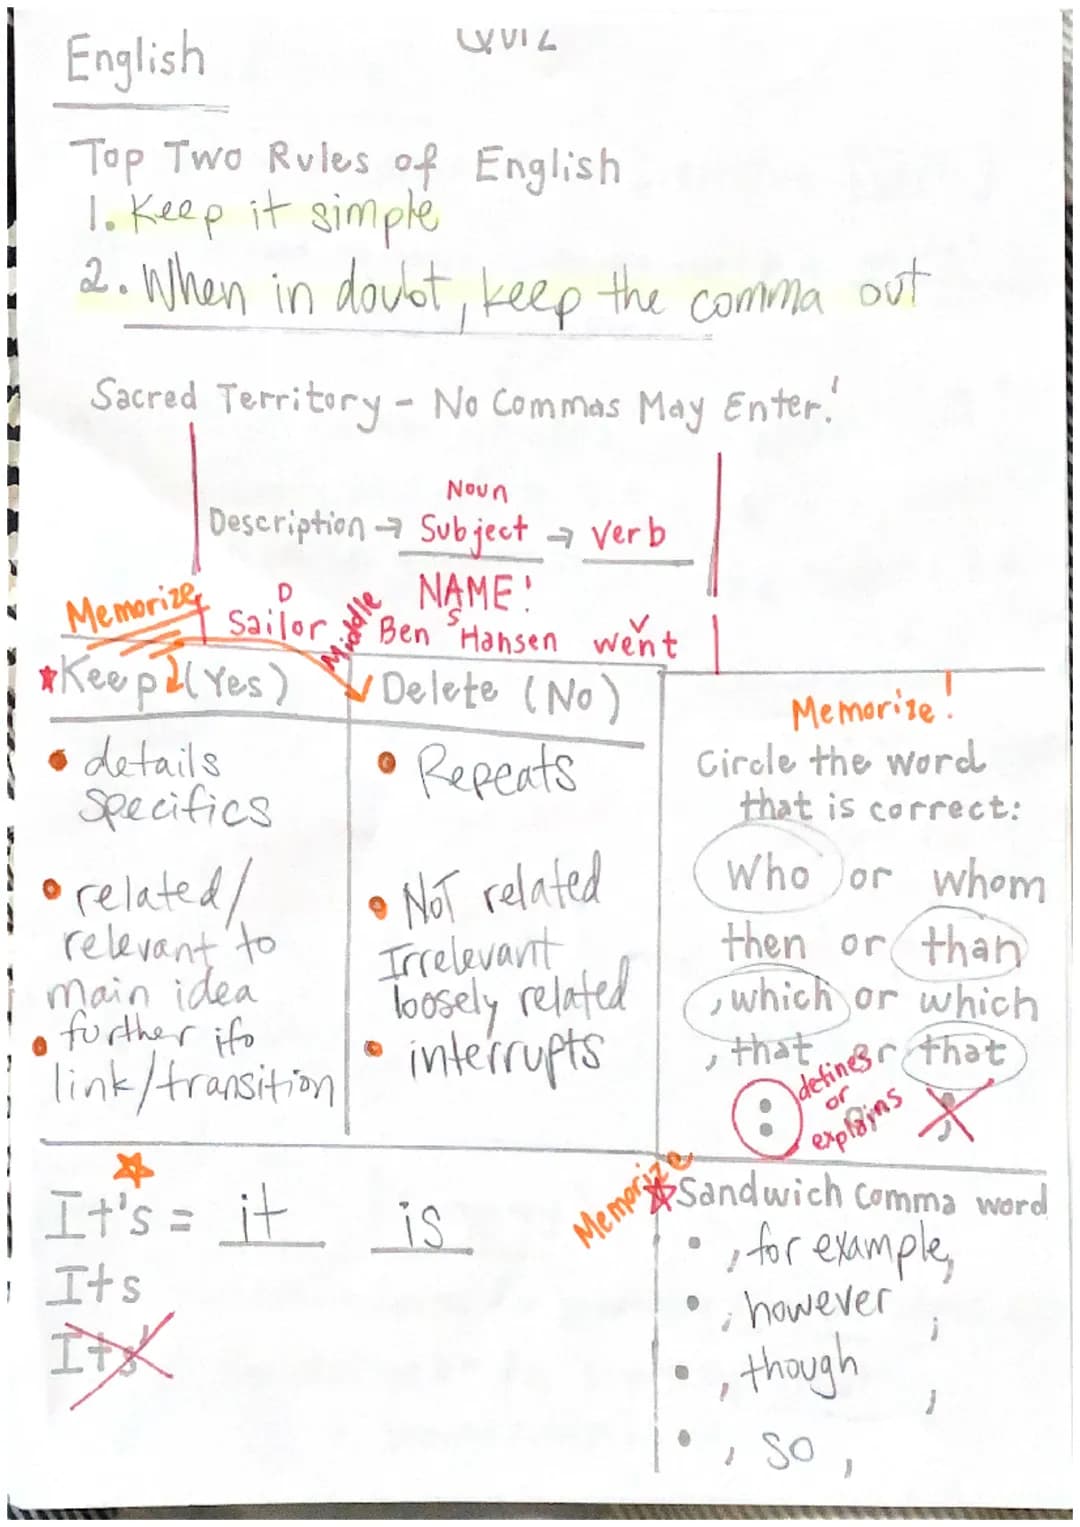 English
QUIZ
Top Two Rules of English
1. Keep it simple
2. When in doubt, keep the comma out
Sacred Territory - No Commas May Enter!
Noun
Description → Subject → Verb
NAME!
Memorize
D
S
V
Sailor Ben Hansen went
Middle
Keep (Yes)
details
specifics
related/
relevant to
main idea
further ifo
link/transition
Delete (No)
Repeats
NOT related
Irrelevant
loosely related
interrupts
Memorize!
Circle the word
that is correct:
Who or whom
then or than
, which or which
, that or that
: defines
or
explains
;
It's = it is
Its
Its'
Memorize
Sandwich Comma word
, for example,
, however ,
, though ,
, so ,